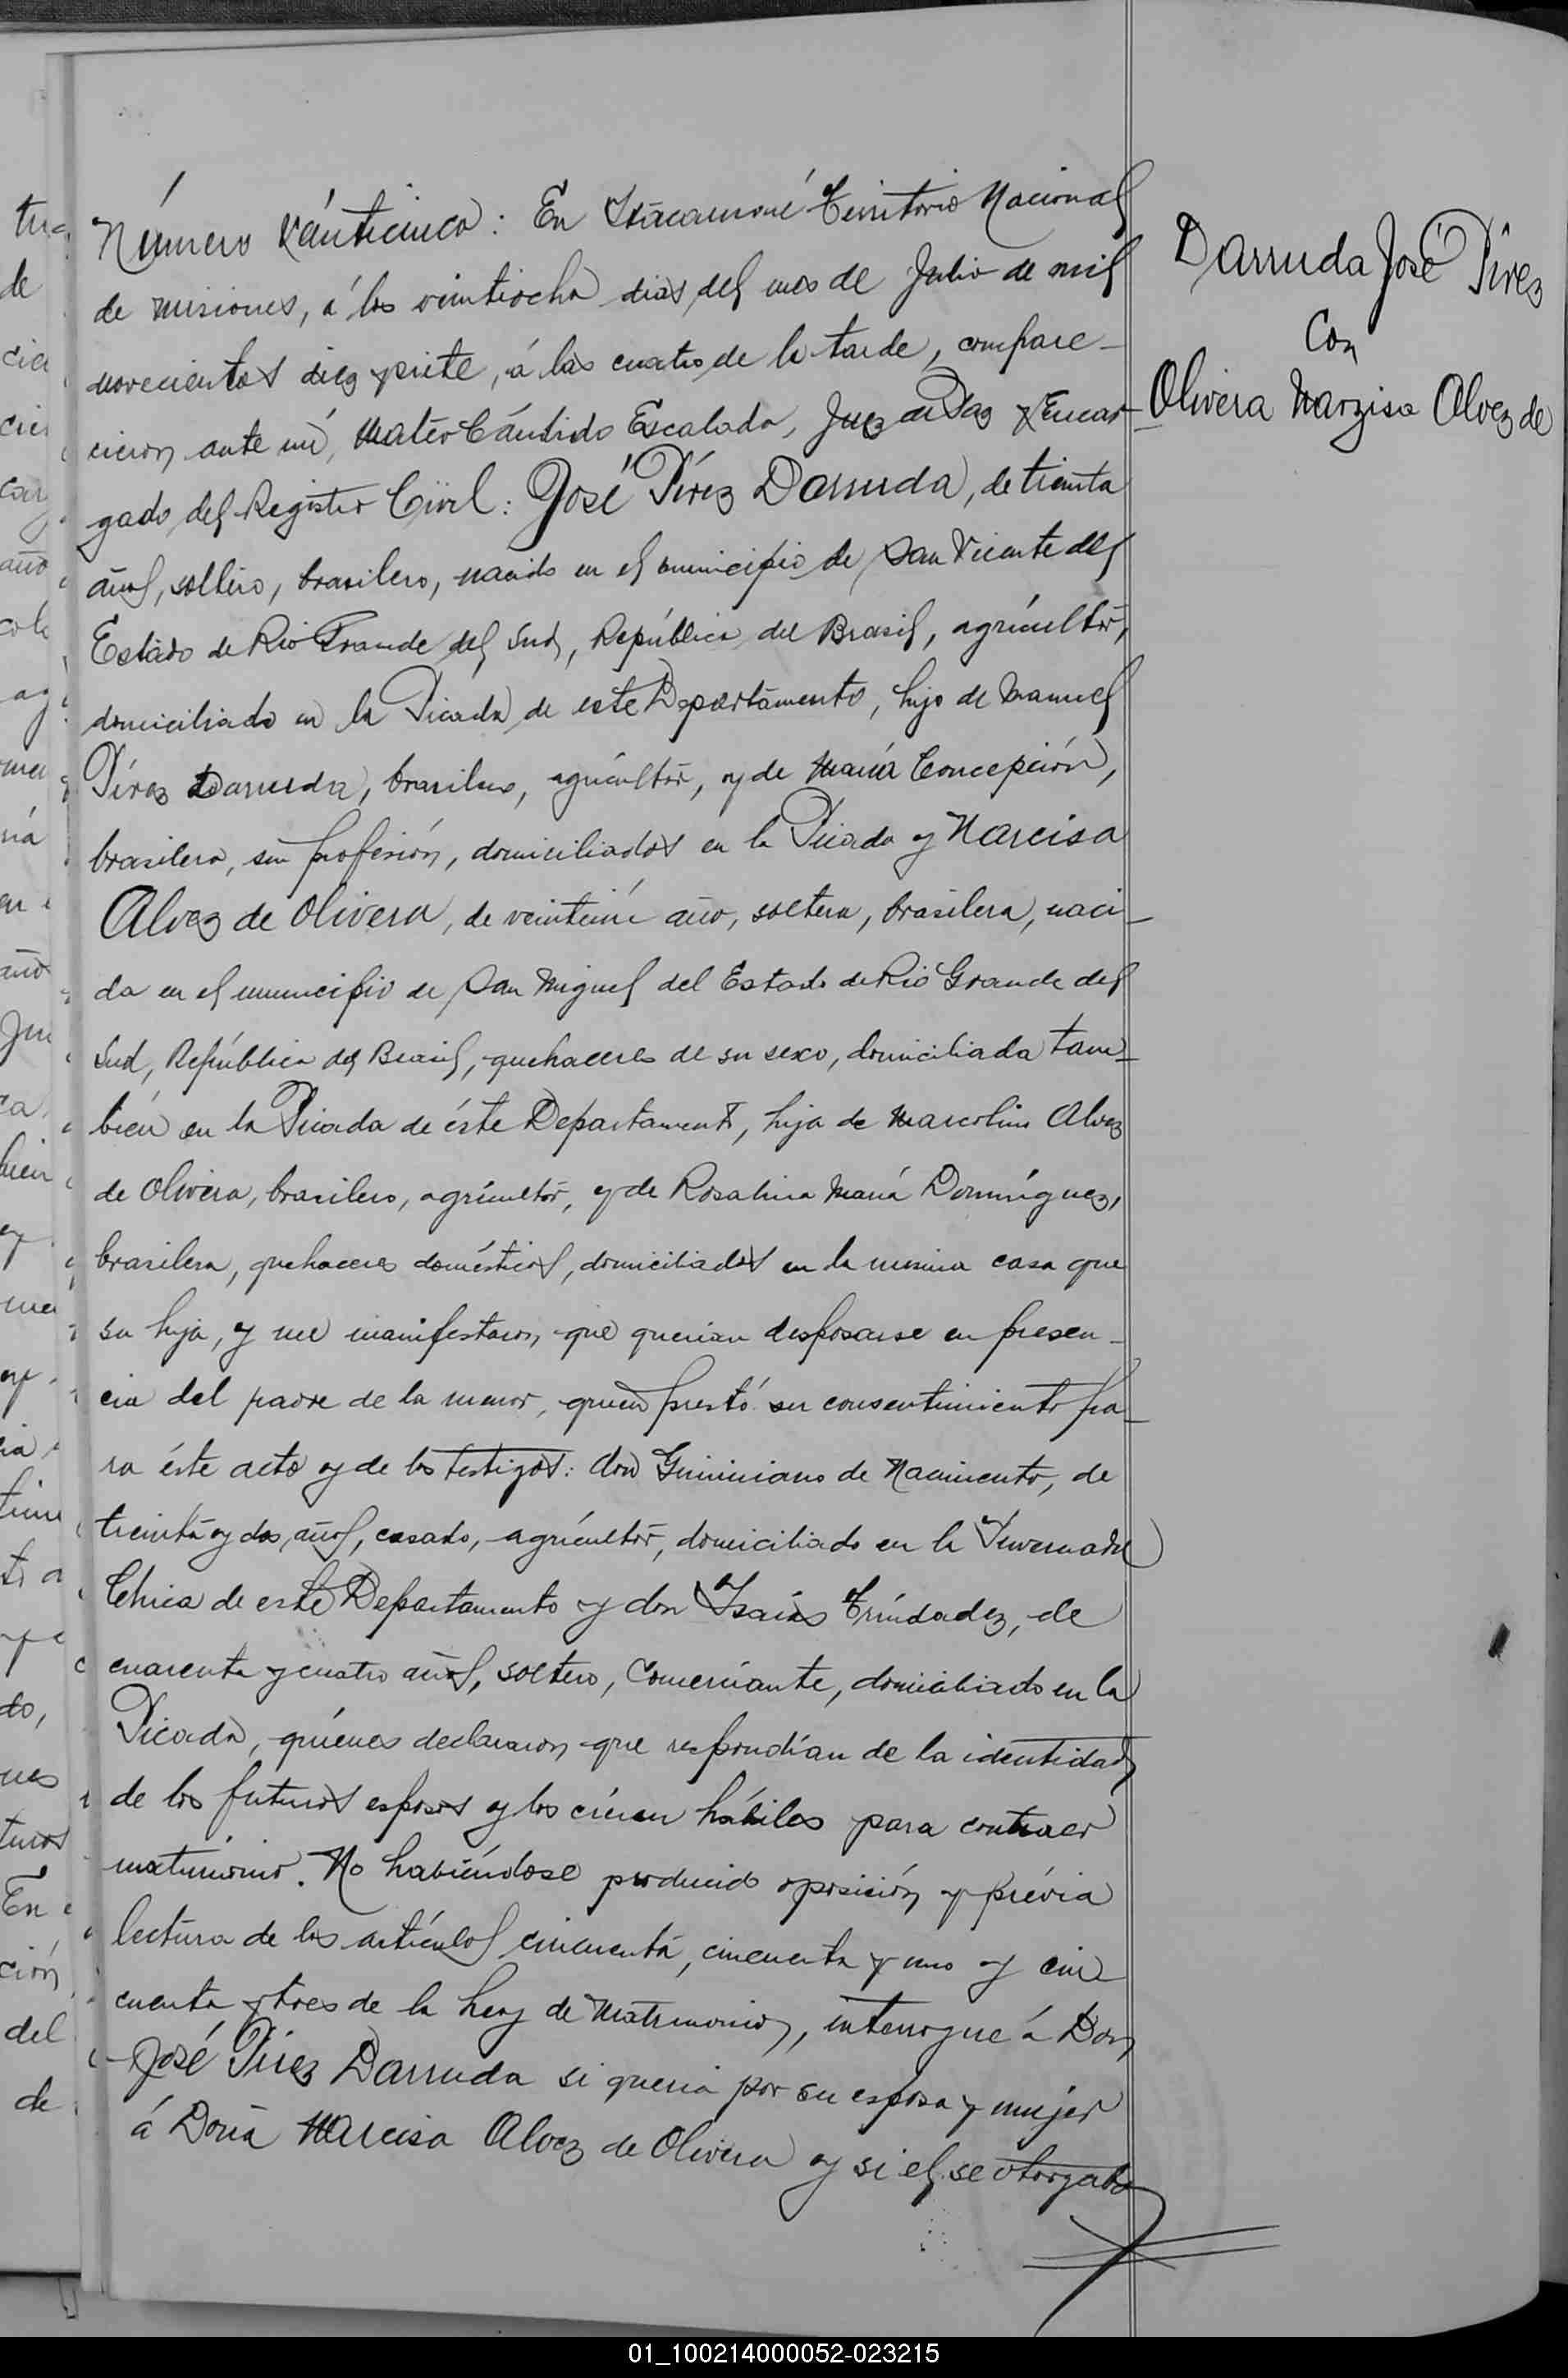 Número Veinticinco: En Itacaruaré Territorio Nacional
de Misiones, á los veintiocho dias del mes de Julio de mil
novecientos diez y siete, á las cuatro de la tarde, compare-
cieron ante mí, Mateo Cándido Escalada, Juez de Paz y Encar-
gado del Registro Civil: José Pírez Darruda, de treinta
años, soltero, brasilero, nacido en el municipio de San Vicente del
Estado de Rio Grande del Sud, República del Brasil, agricultor,
domiciliado en la Picada de este Departamento, hijo de Manuel
Pírez Darruda, brasilero, agricultor, y de María Concepción,
brasilera, sin profesión, domiciliados en la Picada y Narcisa
Alvez de Olivera, de veintiún año, soltera, brasilera, naci-
da en el municipio de San Miguel del Estado de Rio Grande del
Sud, República del Brasil, quehaceres de su sexo, domiciliada tam-
bién en la Picada de éste Departamento, hija de Marcolino Alvez
de Olivera, brasilero, agricultor, y de Rosalina María Domínguez,
brasilera, quehaceres domésticos, domiciliados en la misma casa que
su hija, y me manifestaron que querian desposarse en presen-
cia del padre de la menor, quien prestó su consentimiento pa-
ra éste acto y de los testigos: don Giminiano de Nacimento, de
treinta y dos años, casado, agricultor, domiciliado en la Invernada
Chica de este Departamento y don Isaías Trindadez, de
cuarenta y cuatro años, soltero, Comerciante, domiciliado en la
Picada, quiénes declararon que respondían de la identidad
de los futuros esposos y los créen hábiles para contraer
matrimonio. No habiéndose producido oposición y prévia
lectura de los artículos cincuenta, cincuenta y uno y cin-
cuenta y tres de la Ley de Matrimonio, interrogué á Don
José Pírez Darruda si queria por su esposa y mujer
á Doña Narcisa Alvez de Olivera y si el se otorgaba
Darruda José Pírez
Con
Olivera Narzisa Alvez de
01_100214000052-023215